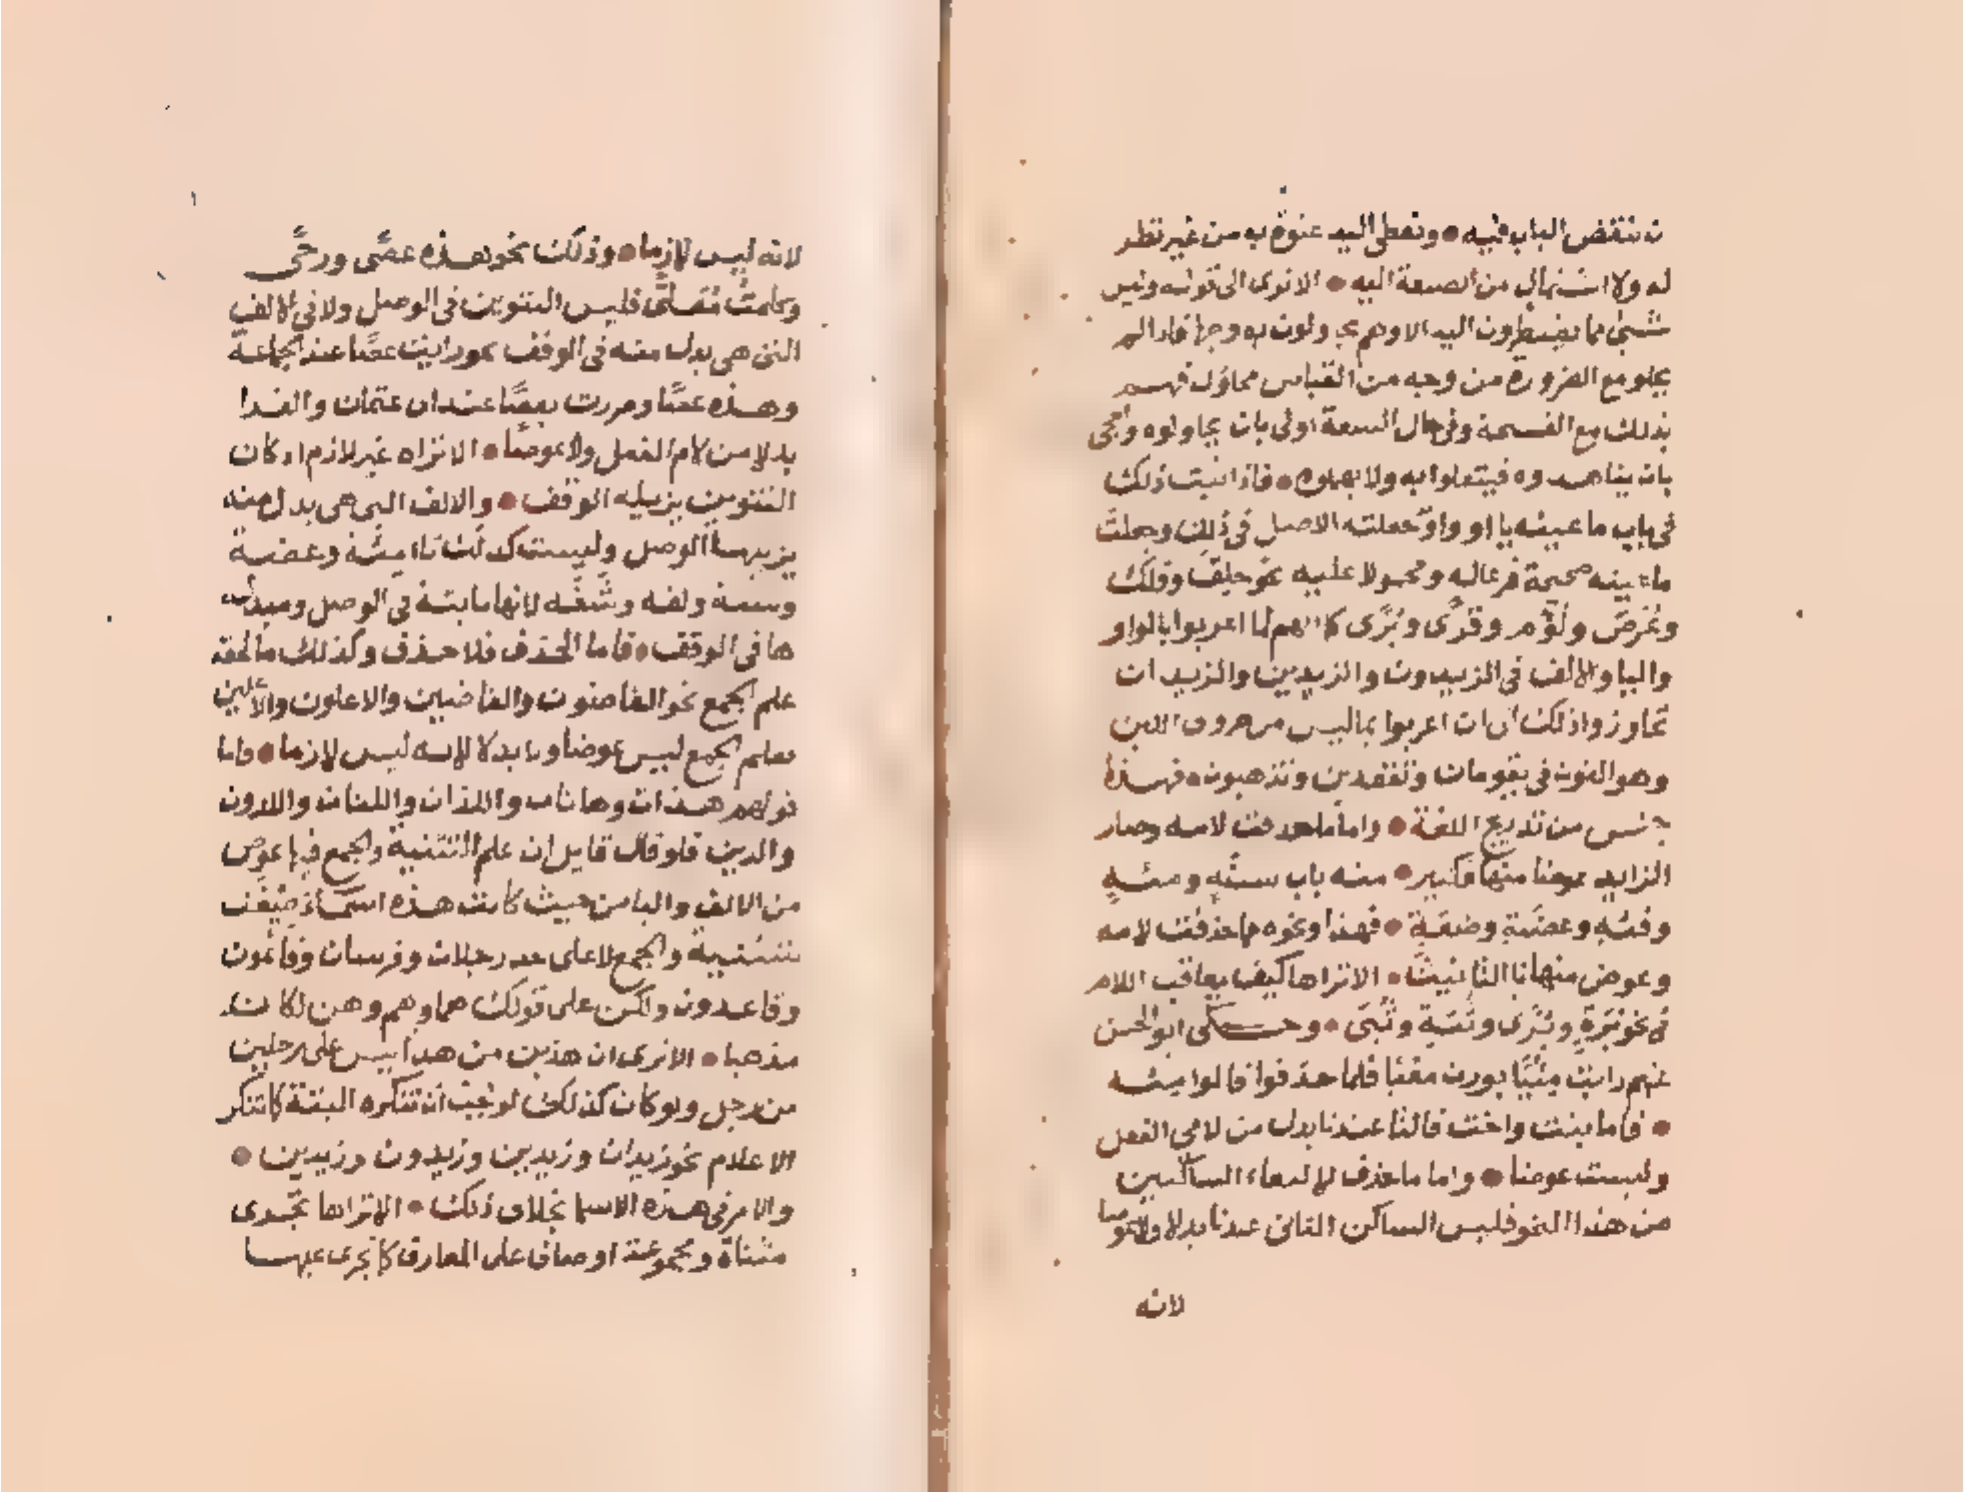 ن ننقض الباب فيه • ونعطى اليد عنوة به من غير نظر
له ولا اشتمال من الصنعة اليه • الا ترى الى قوله وليس
شئ مما يضطرون اليه الا وهم يحاولون به وجها فاذا لم
يخلو مع الضرورة من وجه من القياس محاول فهم
بذلك مع الفسحة وفي حال السعة اولى بان يحاولوه واحجى
بان يناهدوه فيتعللوا به ولا يهملوه • فاذا ثبت ذلك
في باب ما عينه يا او واو جعلته الاصل في ذلك وجعلت
ما عينه صحيحة فرعا له ومحمولا عليه نحو حلق وفلك
وعُرض ولُؤم وقرًى وبُرًى كما انهم لما اعربوا بالواو
واليا والالف في الزيدون والزيدين والزيدان
تجاوزوا ذلك الى ان اعربوا بما ليس من حروف اللين
وهو النون في يقومان وتقعدين وتذهبون • فهذا
جنس من تدريج اللغة • واما ما حذفت لامه وصار
الزايد عوضا منها فكثير • منه باب سنةٍ ومئةٍ
وفئةٍ وعضةٍ وضعةٍ • فهذا ونحوه مما حذفت لامه
وعوض منها تا التانيث • الا تراها كيف يعاقب اللام
في نحو بُرَةٍ وبُرًى وثبة وثُبًى • وحكى ابو الحسن
عنهم رايت مِئيًا بوزن معْيًا فلما حذفوا قالوا مئه
• فاما بنت واخت فالتا عندنا بدل من لامي الفعل
وليست عوضا • واما ما حذف لالتقاء الساكنين
من هذا النحو فليس الساكن الثاني عندنا بدلا ولا عوضا
لانه
لانه ليس لازما • وذلك نحو هذه عصًى ورحًى
وكلمت مُعلًّى فليس التنوين في الوصل ولا في الالف
التي هي بدل منه في الوقف نحو رايت عصًا عند الجماعة
وهذه عصًا ومررت بعصًا عند ابى عثمان والفرا
بدلا من لام الفعل ولا عوضًا • الا تراه غير لازم اذ كان
التنوين يزيله الوقف • والالف التي هي بدل منه
يزيلها الوصل وليست كذلك تاء مئة وعضة
وسنة ولغه وشفه لانها ثابتة في الوصل ومبدلت
ها في الوقف • فاما الحذف فلا حذف وكذلك ما لحقه
علم الجمع نحو القاضون والقاضين والاعلون والاعلين
فعلم الجمع ليس عوضا ولا بدلا لانه ليس لازما • فاما
قولهم هذان وهاتان واللذان واللتان واللذون
والذين فلو قال قايل ان علم التثنية والجمع فيها عوض
من الالف واليا من حيث كانت هذه اسما صيغت
للتثنية والجمع لا على حد رجلان وفرسان وقائمون
وقاعدون ولكن على قولك هما وهم وهن لكان
مذهبا • الا ترى ان هذين من هذا ليس على رجلين
من رجل ولو كان كذلك لوجب ان تنكره البتة كما تنكر
الاعلام نحو زيدان وزيدين وزيدون وزيدين •
والامر في هذه الاسما بخلاف ذلك • الا تراها تجرى
مثناة ومجموعة اوصافا على المعارف كما تجرى عليها